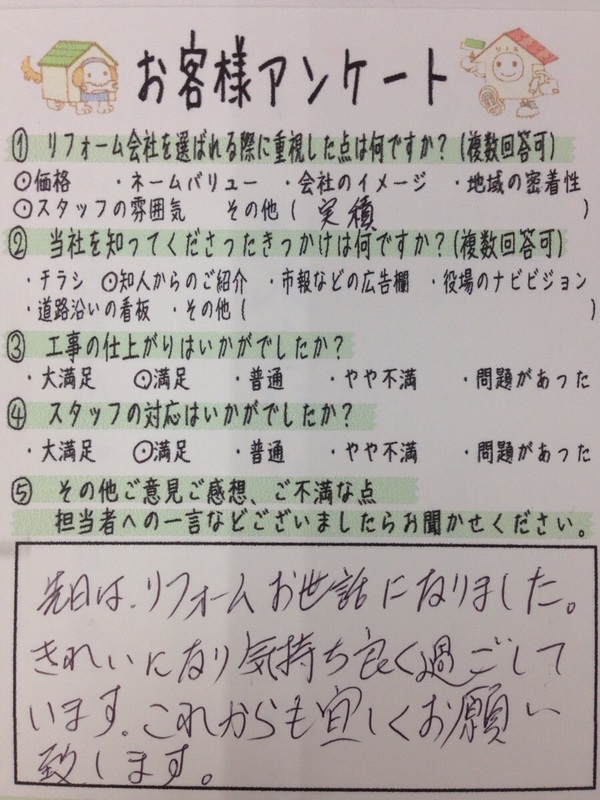 お客様アンケート
① リフォーム会社を選ばれる際に重視した点は何ですか?(複数回答可)
⊙価格 ・ネームバリュー ・会社のイメージ ・地域の密着性
⊙スタッフの雰囲気 その他( 実績 )
② 当社を知ってくださったきっかけは何ですか?(複数回答可)
・チラシ ⊙知人からのご紹介 ・市報などの広告欄 ・役場のナビビジョン
・道路沿いの看板 ・その他( )
③ 工事の仕上がりはいかがでしたか?
・大満足 ⊙満足 ・普通 ・やや不満 ・問題があった
④ スタッフの対応はいかがでしたか?
・大満足 ⊙満足 ・普通 ・やや不満 ・問題があった
⑤ その他ご意見ご感想、ご不満な点
担当者への一言などございましたらお聞かせください。
先日は、リフォームお世話になりました。
きれいになり気持ち良く過ごして
います。これからも宜しくお願い
致します。